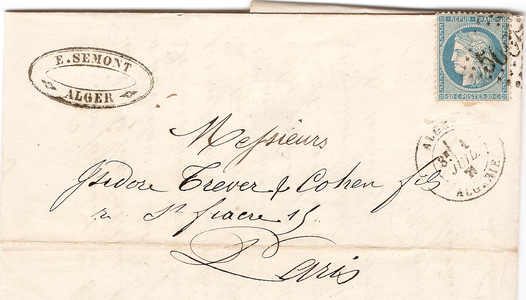 E. SEMONT
ALGER
REPUB. FRANC.
20 C POSTES 20 C
ALGER
ALGÉRIE
JUIL.
Messieurs
Isidore Trever & Cohen fils
r. St fiacre 15
Paris